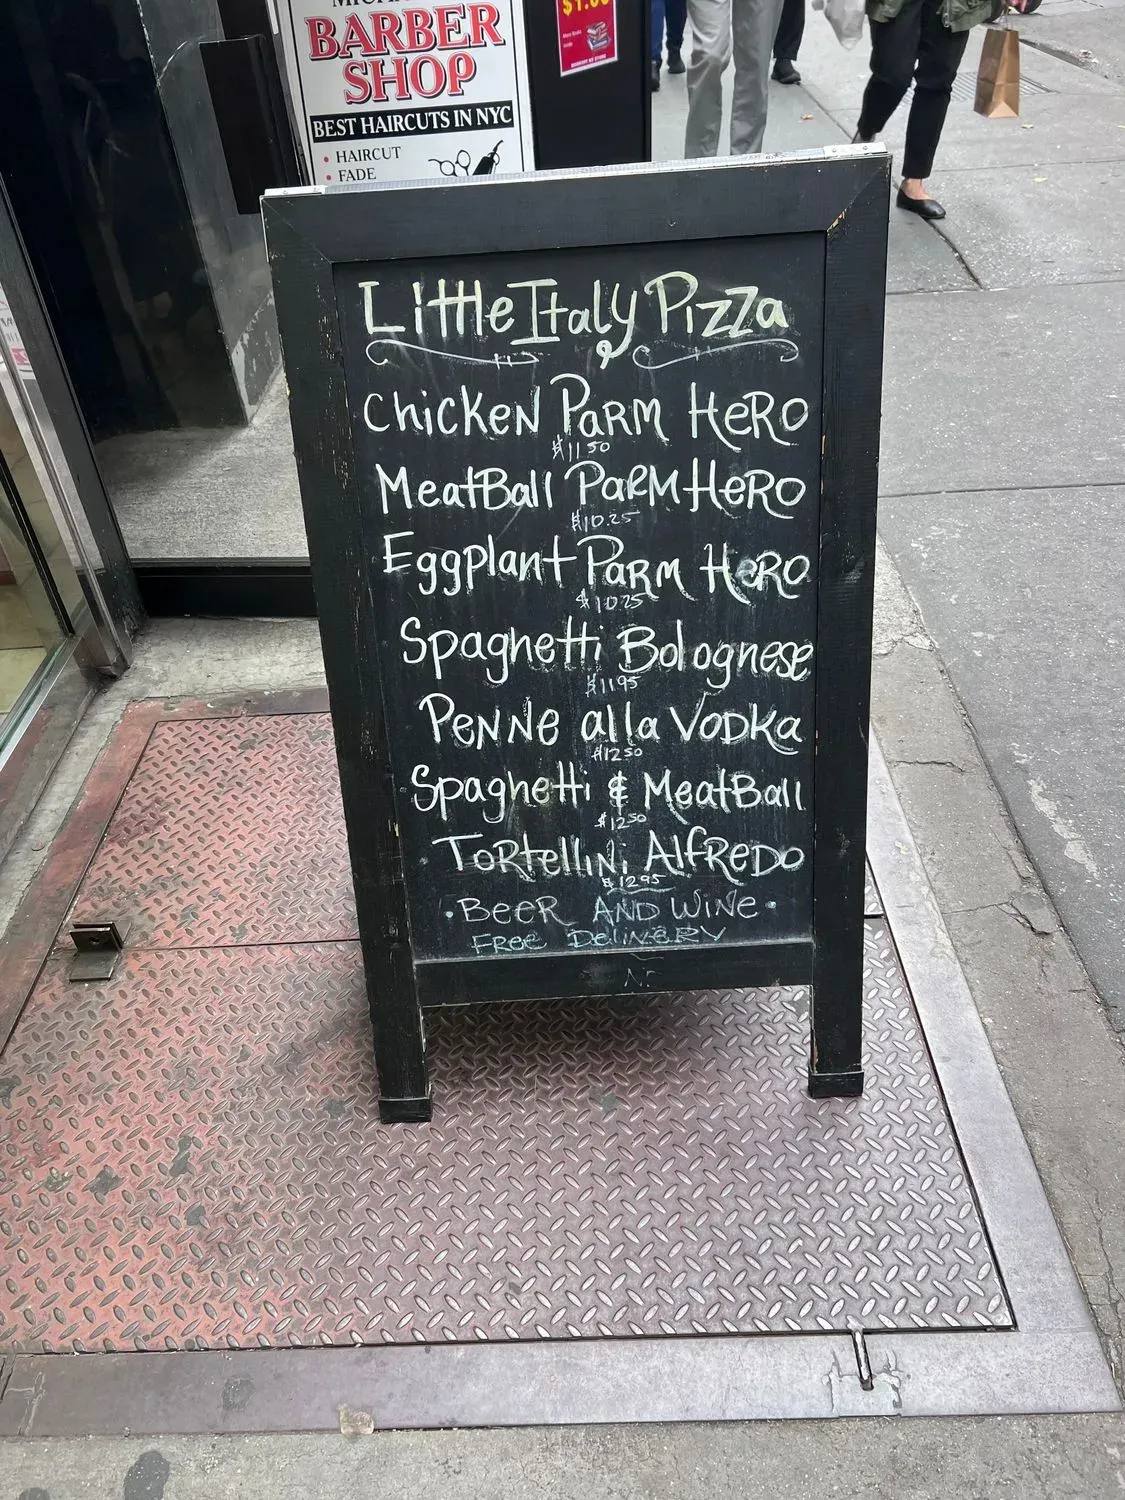 BARBER
SHOP
BEST HAIRCUTS IN NYC
• HAIRCUT
• FADE
$1.00
Little Italy Pizza
Chicken Parm Hero
$11.50
MeatBall Parm Hero
$10.25
Eggplant Parm Hero
$10.25
Spaghetti Bolognese
$11.95
Penne alla Vodka
$12.50
Spaghetti & MeatBall
$12.50
Tortellini Alfredo
$12.95
• Beer AND WiNe •
Free Delivery